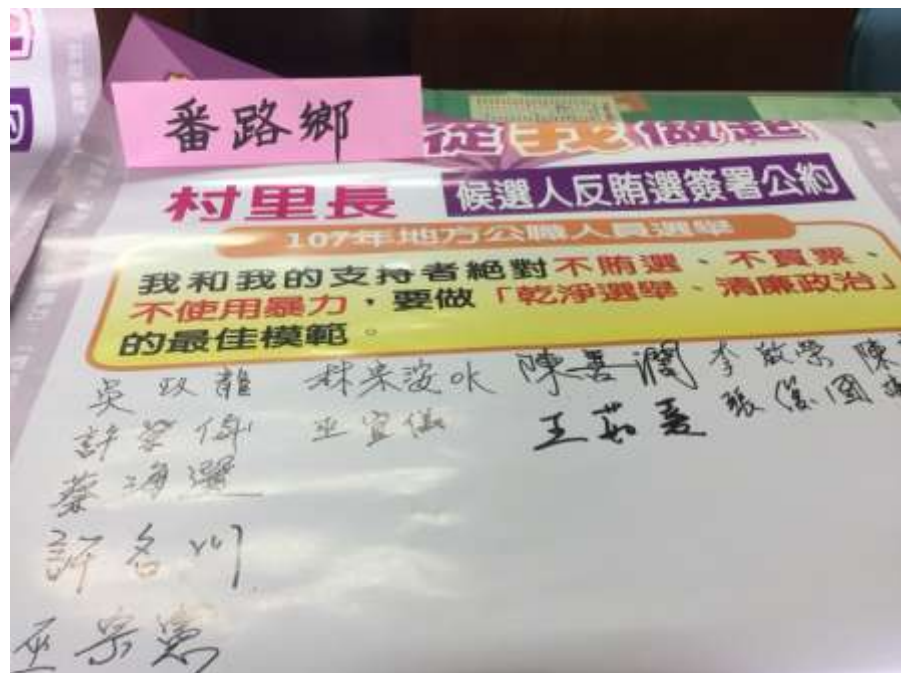 番路鄉
從我做起
村里長 候選人反賄選簽署公約
107年地方公職人員選舉
我和我的支持者絕對不賄選、不買票、
不使用暴力，要做「乾淨選舉、清廉政治」
的最佳模範。
陳善潤 李敬榮 陳
許榮偉 巫宜儀 張俊國
蔡海選
許名川
巫宗憲